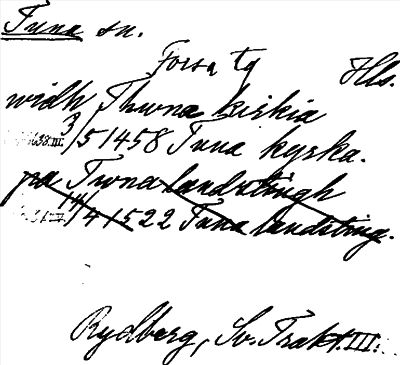 Tuna sn.
Forsa tg Hls.
widh Thwna kirkia
3/5 1458 Tuna kyrka.
pa Twna landztingh
14/4 1522 Tuna landsting.
Rydberg, Sv. Trakt. III: